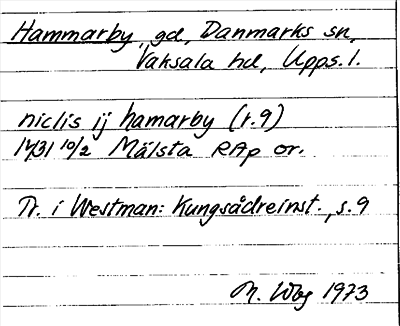 Hammarby, gd, Danmarks sn,
Vaksala hd, Upps. l.
niclis ij hamarby (r.9)
1431 10/2 Mälsta RAp or.
Tr. i Westman: Kungsådreinst., s. 9
M. Wbg 1973